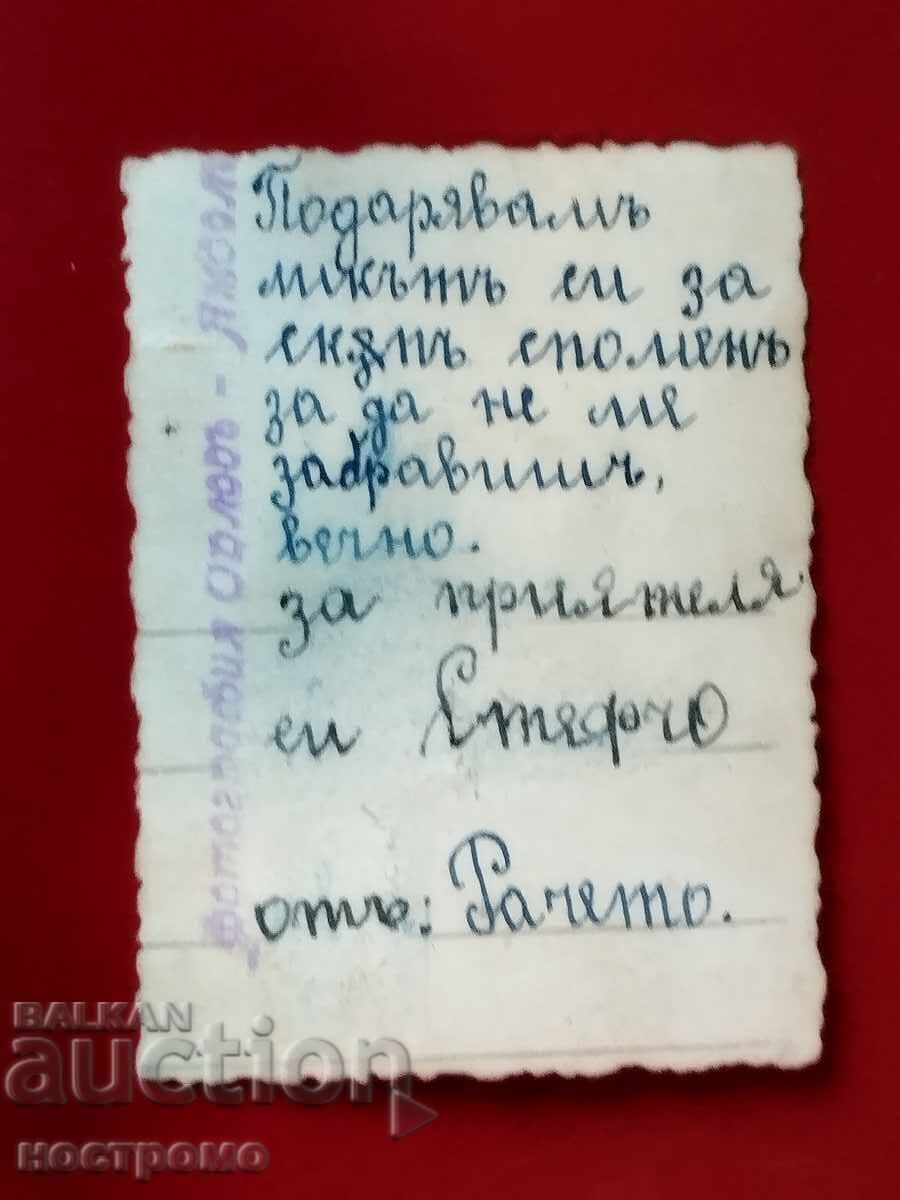 Подарявамъ
ликътъ си за
скѫпъ споменъ
за да не ме
забравишъ,
вечно.
за приятеля
си Стефчо
отъ: Рачето.
фотография
BALKAN
auction
ностромо